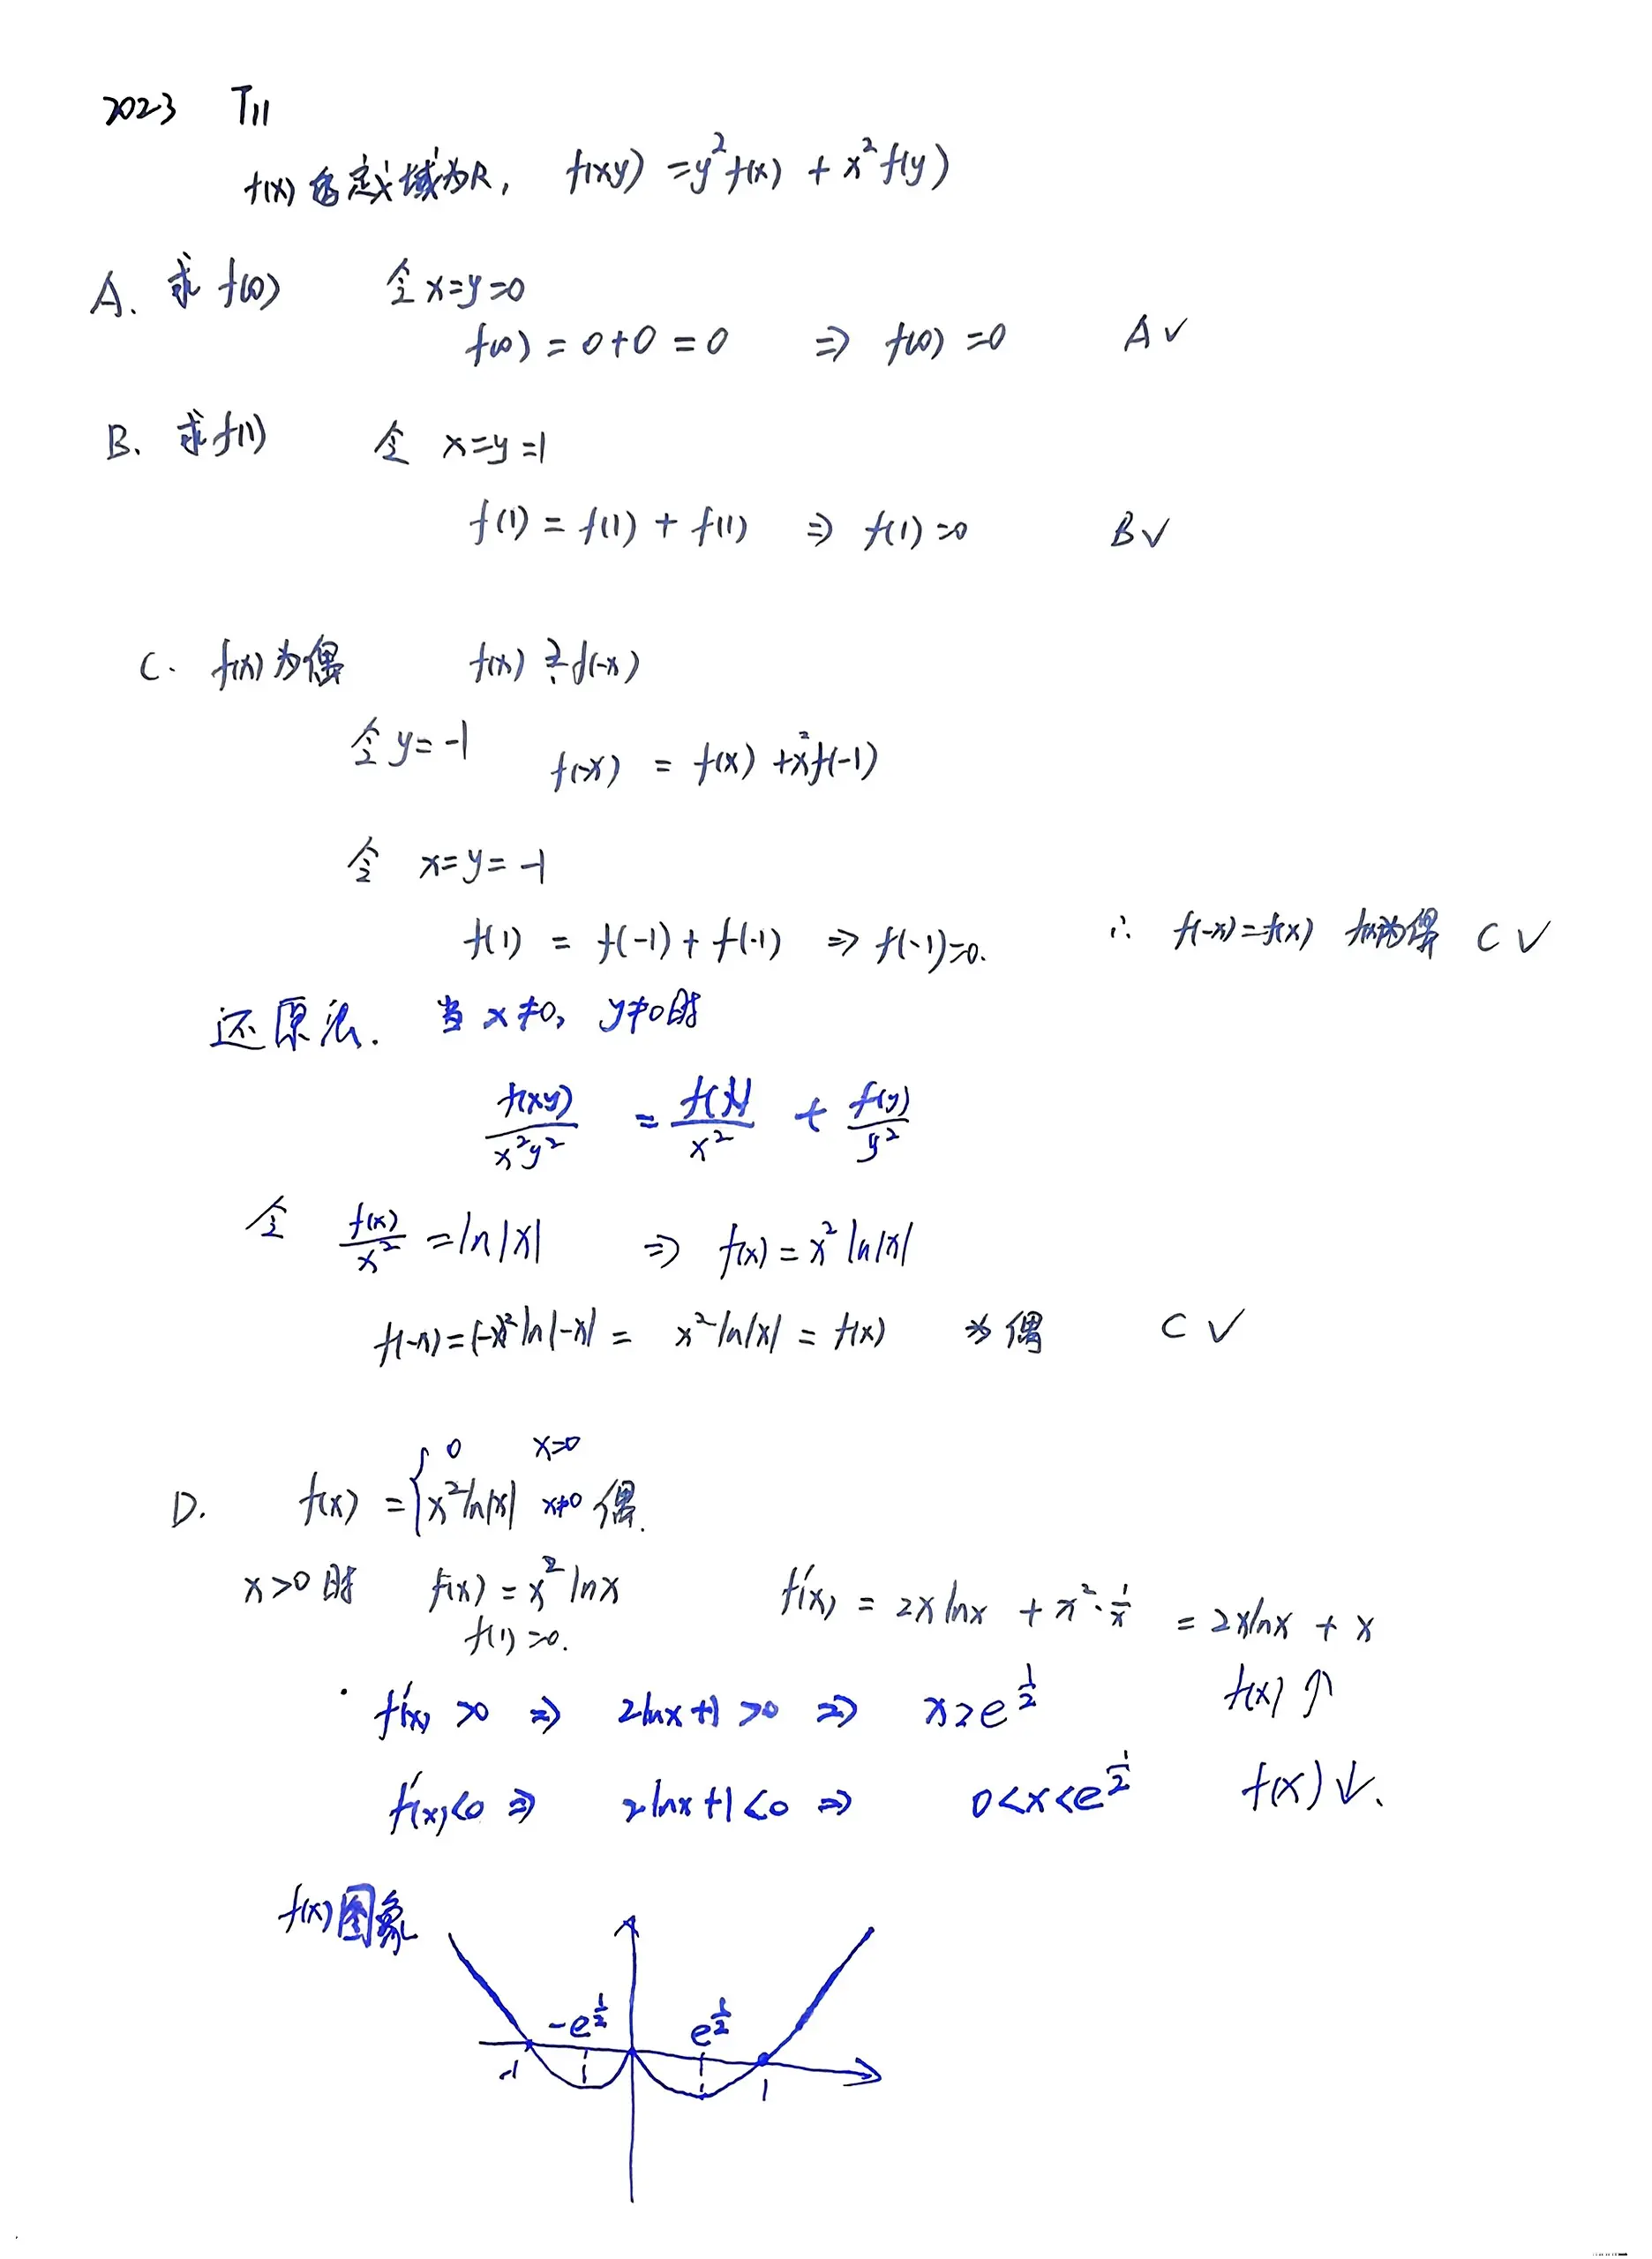 2023 T11
f(x)的定义域为R, f(xy) = y²f(x) + x²f(y)
A. 求 f(0) 令 x=y=0
f(0) = 0+0 = 0 ⇒ f(0) =0 A✓
B. 求f(1) 令 x=y=1
f(1) = f(1) + f(1) ⇒ f(1)=0 B✓
C. f(x)为偶 f(x) ≟ f(-x)
令 y=-1 f(-x) = f(x) +x²f(-1)
令 x=y=-1
f(1) = f(-1) + f(-1) ⇒ f(-1)=0. ∴ f(-x)=f(x) f(x)为偶 C ✓
还原法. 当 x≠0, y≠0时
f(xy)/x²y² = f(x)/x² + f(y)/y²
令 f(x)/x² = ln|x| ⇒ f(x) = x² ln|x|
f(-x) = (-x)² ln|-x| = x² ln|x| = f(x) 为偶 C ✓
D. f(x) = { 0 x=0
x² ln|x| x≠0 偶.
x>0时 f(x) = x² ln x f'(x) = 2x lnx + x²·1/x = 2xlnx + x
f(1)=0.
f'(x) >0 ⇒ 2lnx+1 >0 ⇒ x>e^½ f(x) ↑
f'(x)<0 ⇒ 2lnx+1<0 ⇒ 0<x<e^½ f(x) ↓.
f(x)图象
-e^½ e^½
-1 1